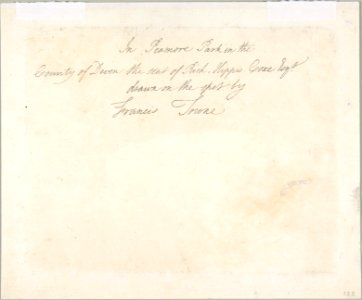 In Peamore Park in the
County of Devon the seat of Rich. Hippis Coxe Esqr
drawn on the spot by
Francis Towne